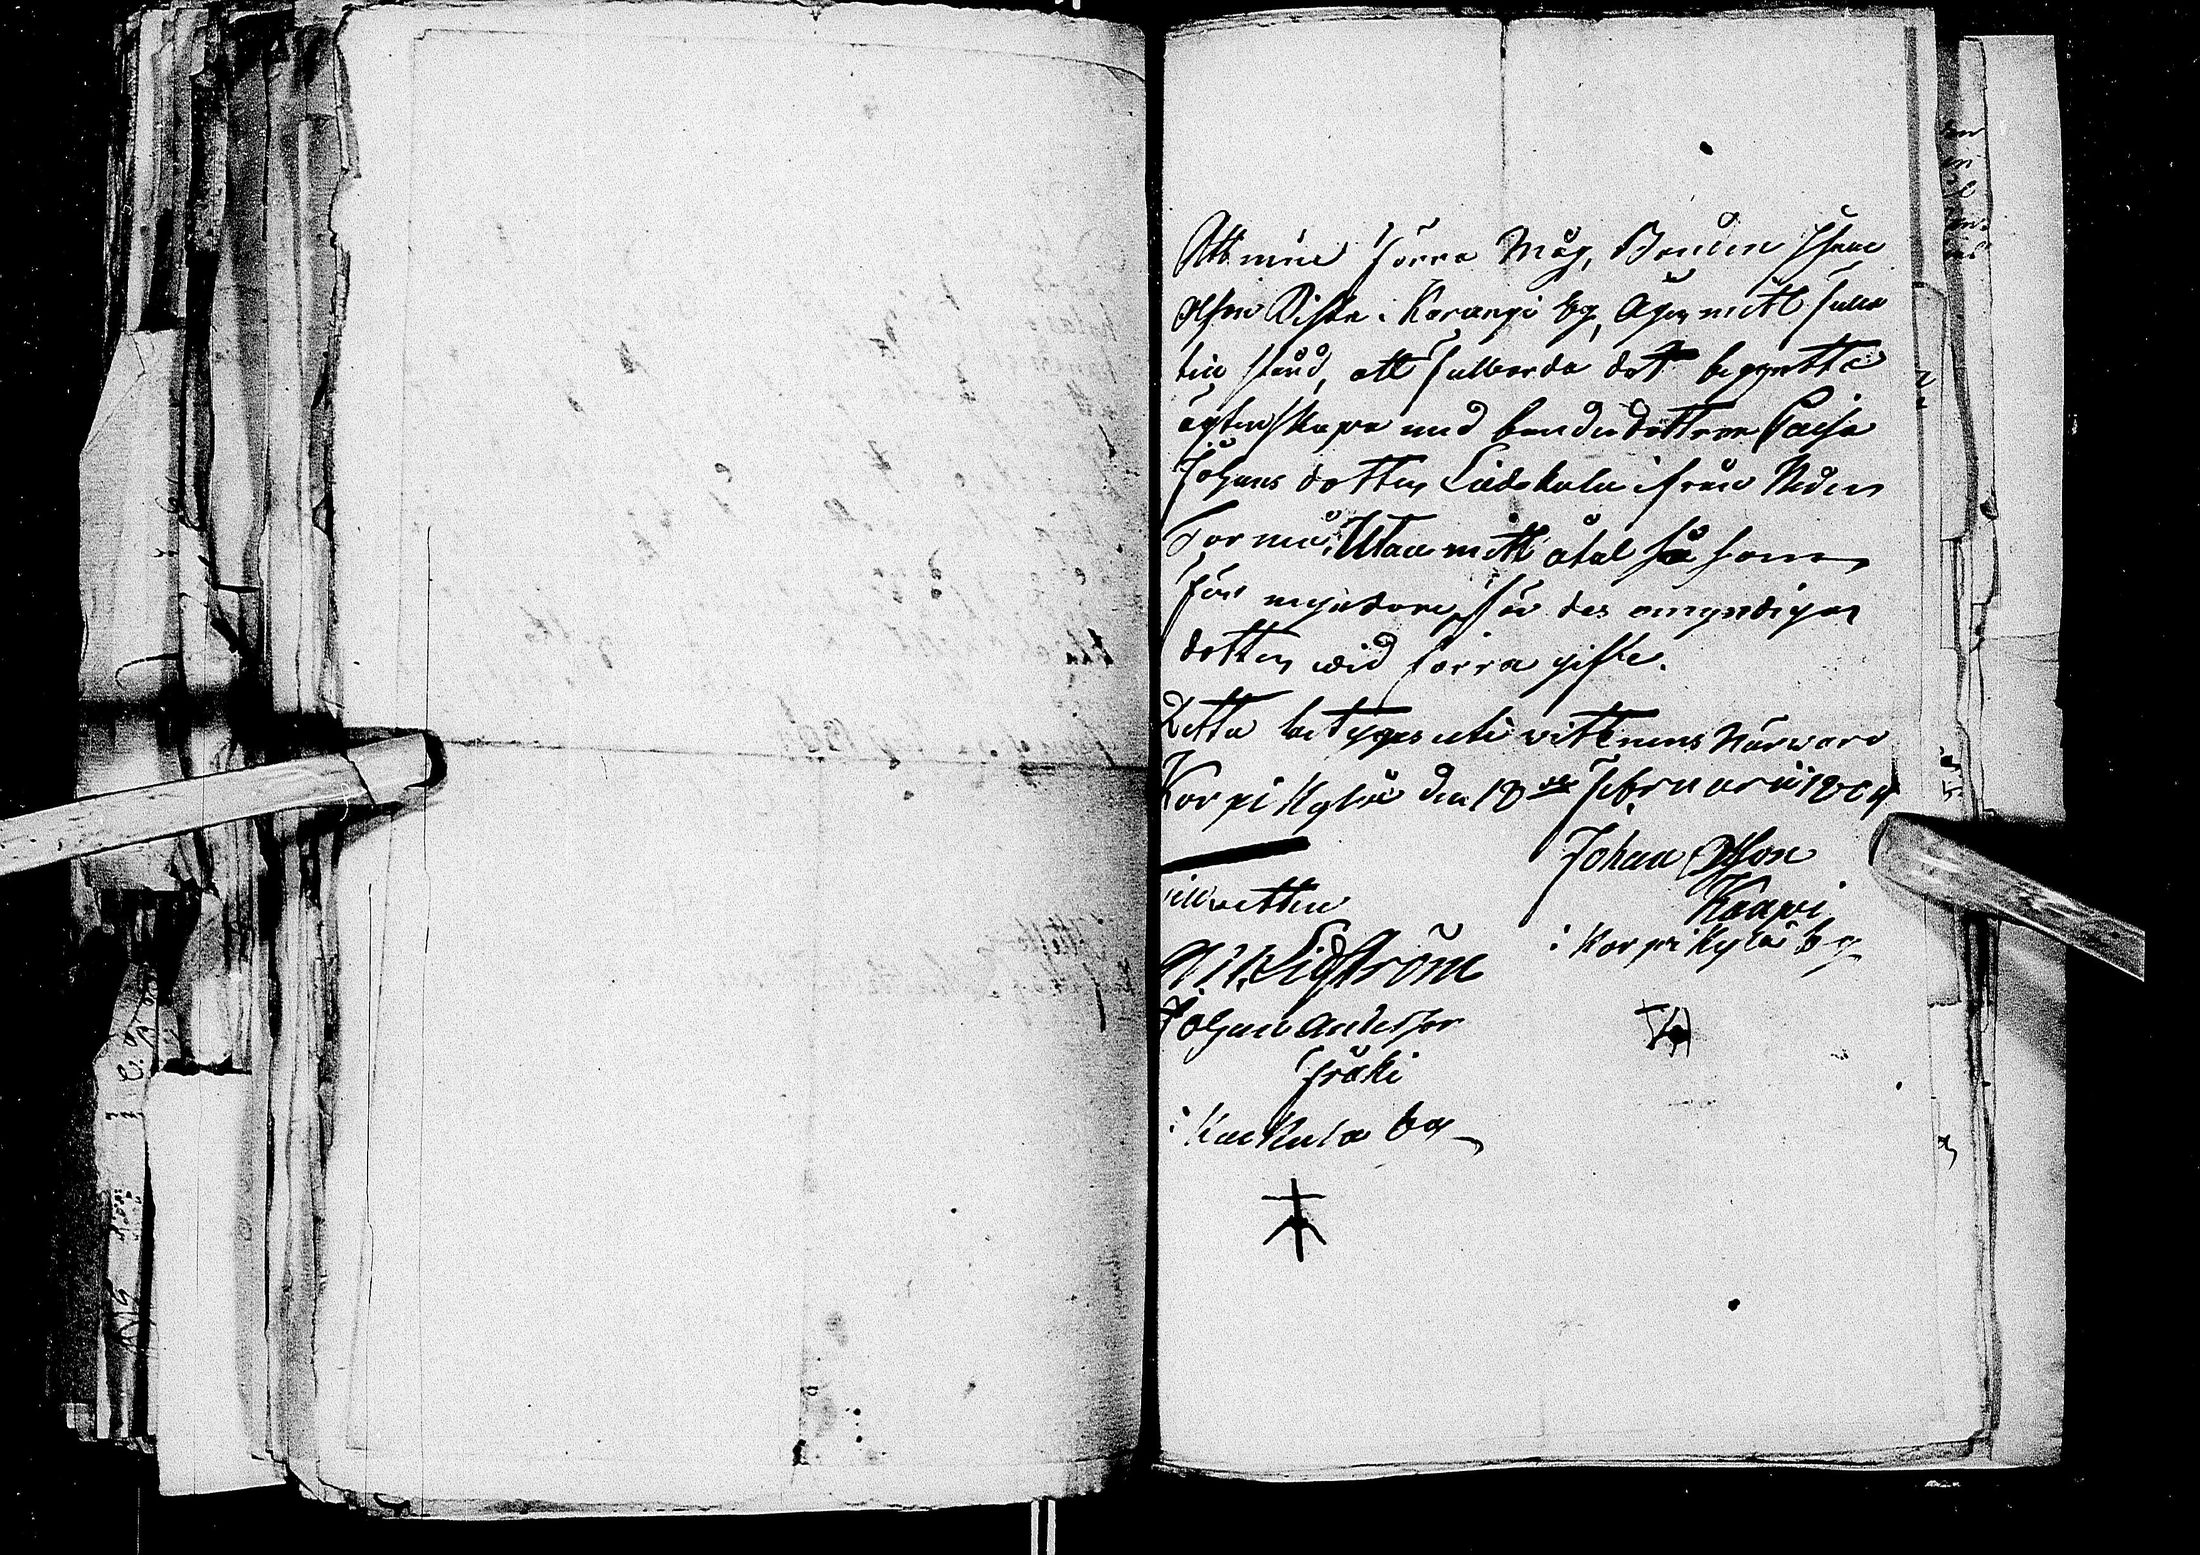 Att min förra Måg, Bonden Isac
Olsson Riska i Karungi by, äger mitt fulla
till stånd, att fullborda det begynta
ägtenskapet med bondedottren Caisa
Johans dotter Liedakala ifrån Neder
Torneå, Utan mitt åtal så som
för myndare för des omyndiga
dotter wid förra gifte.
Detta betyges uti wittnens närwaro
Korpikylä den 18de Februarii 1804
Johan Olsson
Kaapi
i Korpikylä by
till wittne
Lidström
Johan Andersson
Fräki
i Kuckula by